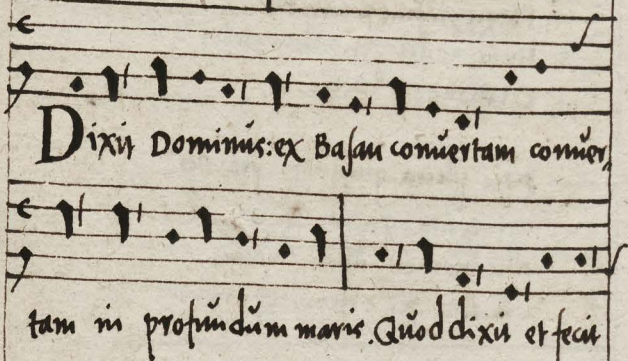 Dixit Dominus: ex Basan convertam conver,
tam in profundum maris. Quod dixit et fecit